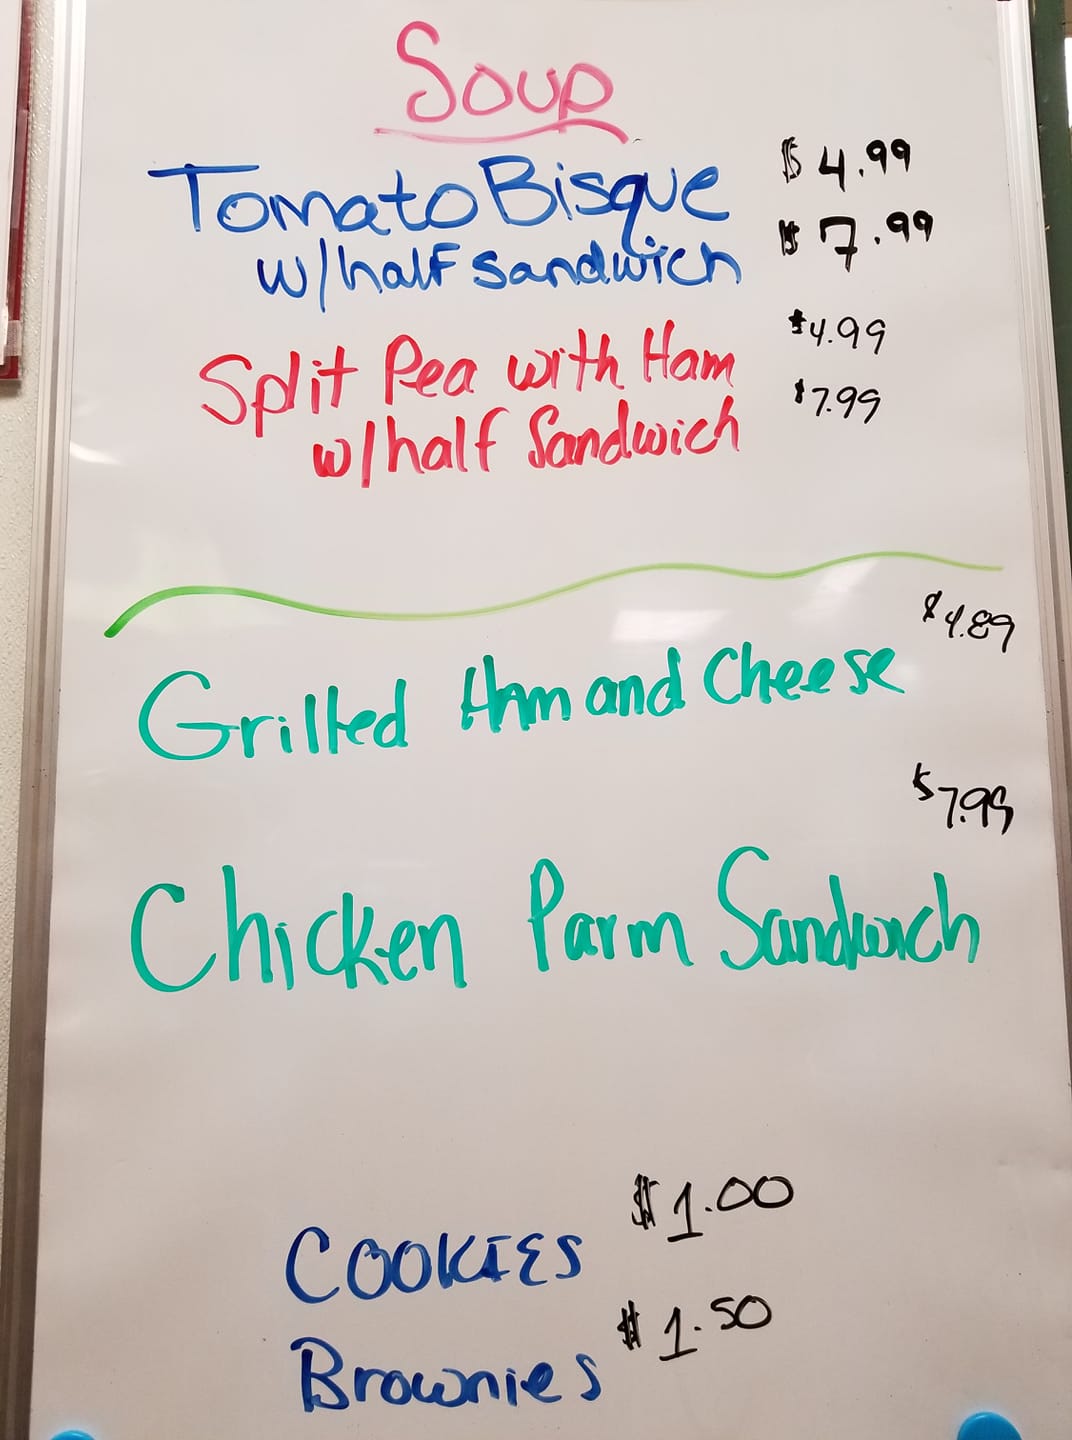 Soup
Tomato Bisque $4.99
w/half sandwich $7.99
Split Pea with Ham $4.99
w/half Sandwich $7.99
$4.89
Grilled Ham and Cheese
$7.99
Chicken Parm Sandwich
$1.00
COOKIES
$1.50
Brownies